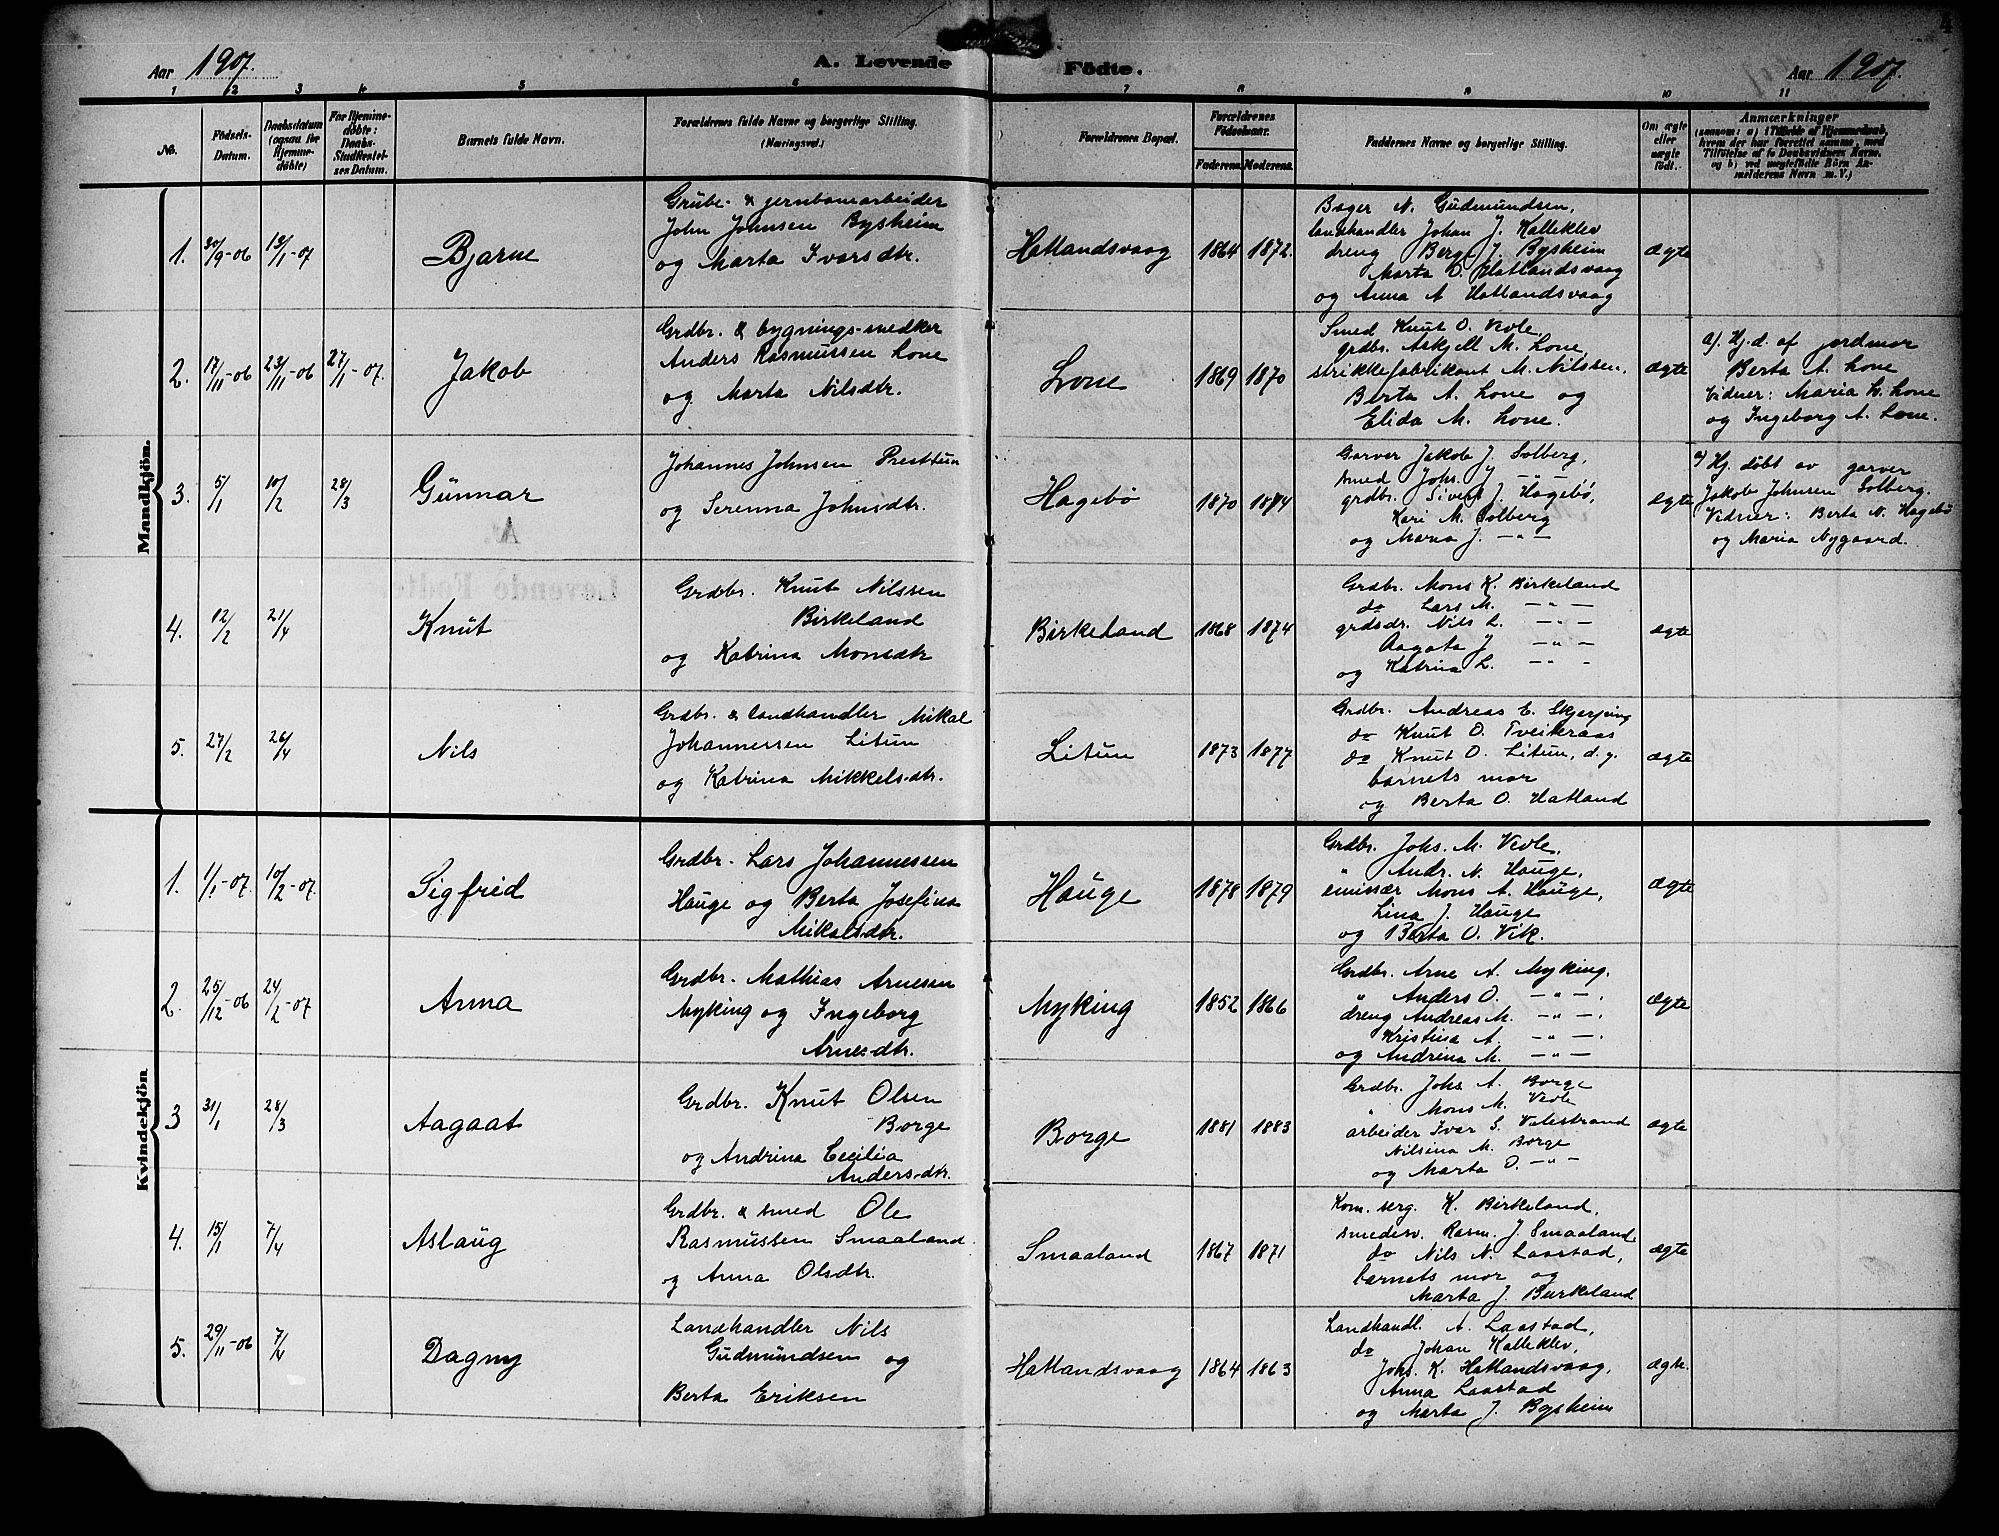 4
Aar 1907. A. Levende Födte. Aar 1907.
1 2 3 4 5 6 7 8 9 10 11
No.
Födsels-Datum.
Daabsdatum (ogsaa for Hjemme-döbte)
For Hjemme-döbte: Daabs-Stadfæstel-ses Datum.
Barnets fulde Navn.
Forældrenes fulde Navne og borgerlige Stilling. (Næringsvei.)
Forældrenes Bopæl.
Forældrenes Födselsaar.
Faderens. Moderens.
Faddernes Navne og borgerlige Stilling.
Om ægte eller uægte födt.
Anmærkninger
(saasom: a) i Tilfælde af Hjemmedaab, hvem der har forrettet samme, med Tilföielse af to Daabsvidners Navne, og b) ved uægtefödte Börn An-melderens Navn m. V.)
Mandkjön.
1. 30/9-06 13/1-07 Bjarne
Grube- & jernbanearbeider
John Johnsen Bysheim
og Marta Ivarsdtr.
Hatlandsvaag 1864 1872.
Bager N. Gudmundsen,
landhandler Johan J. Kalleklev
dreng Berge J. Bysheim
Marta O. Hatlandsvaag
og Anna A Hatlandsvaag
ægte
2. 17/11-06 23/11-06 27/1-07. Jakob
Grdbr. & bygnings-snedker
Anders Rasmussen Lone
og Marta Nilsdtr.
Lone 1869 1870
Smed Knut O. Vevle,
grdbr. Askjell M. Lone,
strikkefabrikant M. Nilssen,
Berta A. Lone og
Elida M. Lone.
ægte
a). Hj.d. af jordmor
Berta A. Lone
Vidner: Maria L. Lone
og Ingeborg A. Lone.
3. 5/1 10/2 28/3 Gunnar
Johannes Johnsen Presttun
og Serenna Johnsdtr.
Hagebø 1870 1874
Garver Jakob J. Solberg,
smed Johs. J. — " —
grdbr. Sivert J. Hagebø,
Kari M. Solberg
og Maria J. — " —
ægte
a) Hj. døbt av garver
Jakob Johnsen Solberg.
Vidner: Berta N. Hagebø
og Maria Nygaard.
4. 12/2 21/4 Knut
Grdbr. Knut Nilssen
Birkeland
og Katrina Monsdtr
Birkeland 1868 1874
Grdbr. Mons K. Birkeland
do Lars M. — " —
grdsdr. Nils L. — " —
Aagata J — " —
og Katrina L. — " -
ægte
5. 27/2 26/4 Nils
Grdbr. & landhandler Mikal
Johannessen Litun
og Katrina Mikkelsdtr.
Litun 1873 1877
Grdbr. Andreas E. Skjerping
do Knut O. Tveiteraas
do Knut O. Litun, d. y.
barnets mor
og Berta O. Hatland
ægte
Kvindekjön
1. 1/1-07. 10/2-07. Sigfrid
Grdbr. Lars Johannessen
Hauge og Berta Josefina
Mikalsdtr.
Hauge 1878 1879
Grdbr. Johs. M. Vevle,
" Andr. N. Hauge,
eminær Mons A. Hauge,
Lina J. Hauge
og Berta O. Vik.
ægte
2. 25/12-06 24/2-07 Anna
Grdbr. Mathias Arnesen
Myking og Ingeborg
Arnesdtr.
Myking 1852 1866
Grdbr. Arne A. Myking,
" Anders O. — " —.
dreng Andreas M. — " —.
Kristina A. — " —.
og Andrina M. — " —
ægte
3 31/1 28/3 Aagaat
Grdbr. Knut Olsen
Borge
og Andrina Cecilia
Andersdtr.
Borge 1881 1883
Grdbr. Johs A. Borge
" Mons M. Vevle
arbeider Ivar S. Valestrand
Nilsina M. Borge
og Marta O. — " —
ægte
4. 15/1 7/4 Aslaug
Grdbr. & smed Ole
Rasmussen Smaaland
og Anna Olsdtr.
Smaaland 1867 1871
Kom. serg. K. Birkeland,
smedesv. Rasm. J. Smaaland
do Nils N. Laastad,
barnets mor og
Marta J. Birkeland
ægte
5. 29/11-06 7/4 Dagny
Landhandler Nils
Gudmundsen og
Berta Eriksen
Hatlandsvaag 1864 1863
Landhandl. A. Laastad,
do Johan Kalleklev,
Johs. K. Hatlandsvaag,
Anna Laastad
og Marta J. Bysheim
ægte.